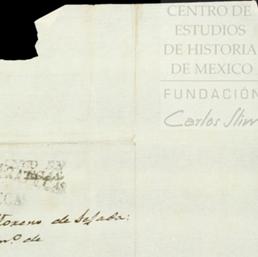 CENTRO DE
ESTUDIOS
DE HISTORIA
DE MEXICO
FUNDACIÓN
Carlos Slim
Moreno de Sesada:
m.º de